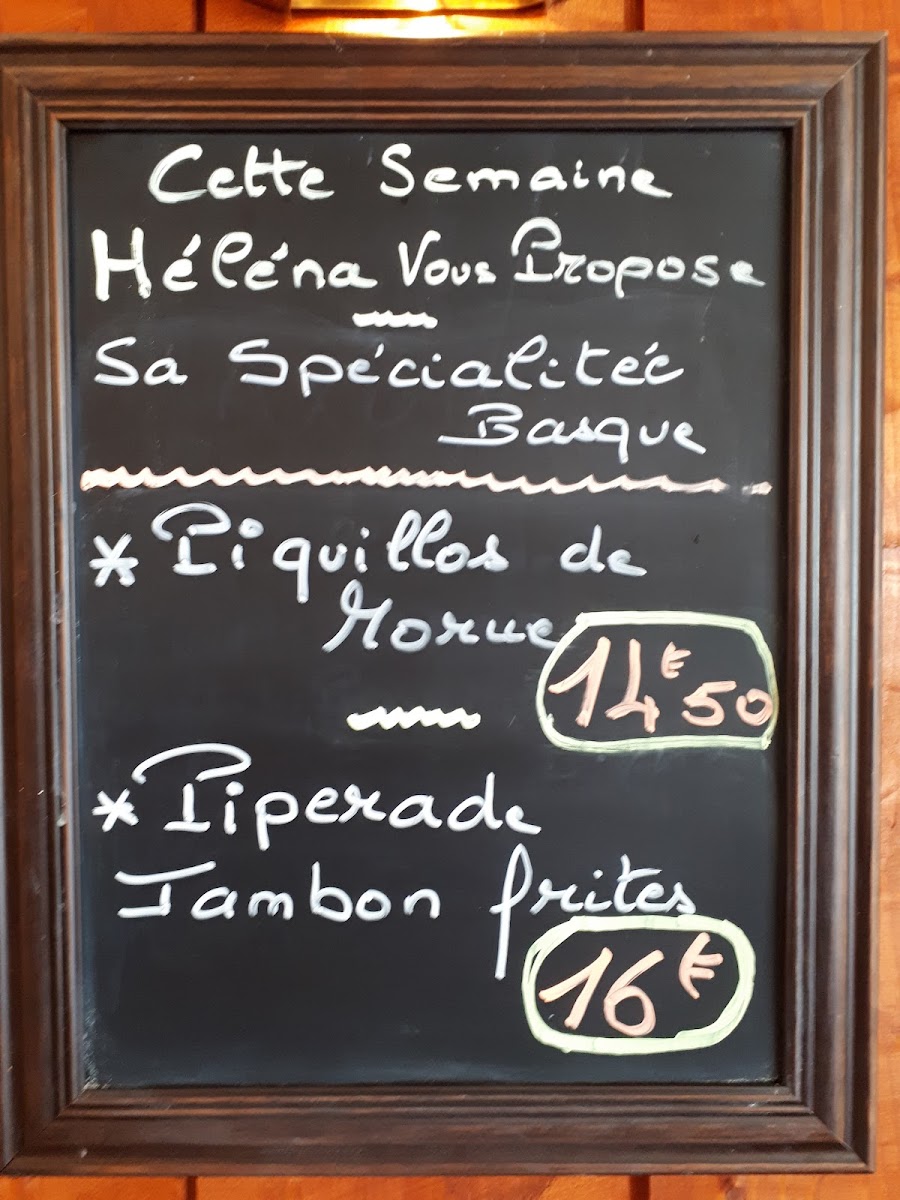 Cette Semaine
Héléna Vous Propose
Sa Spécialitéé
Basque
* Piquillos de
Morue
14€50
* Piperade
Jambon frites
16€